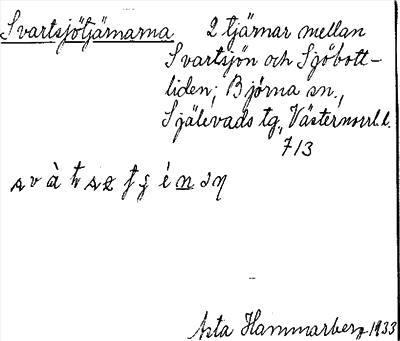 Svartsjötjärnarna 2 tjärnar mellan
Svartsjön och Sjöbott-
liden; Björna sn.,
Själevads tg., Västernorrl. l.
713
Asta Hammarberg 1933